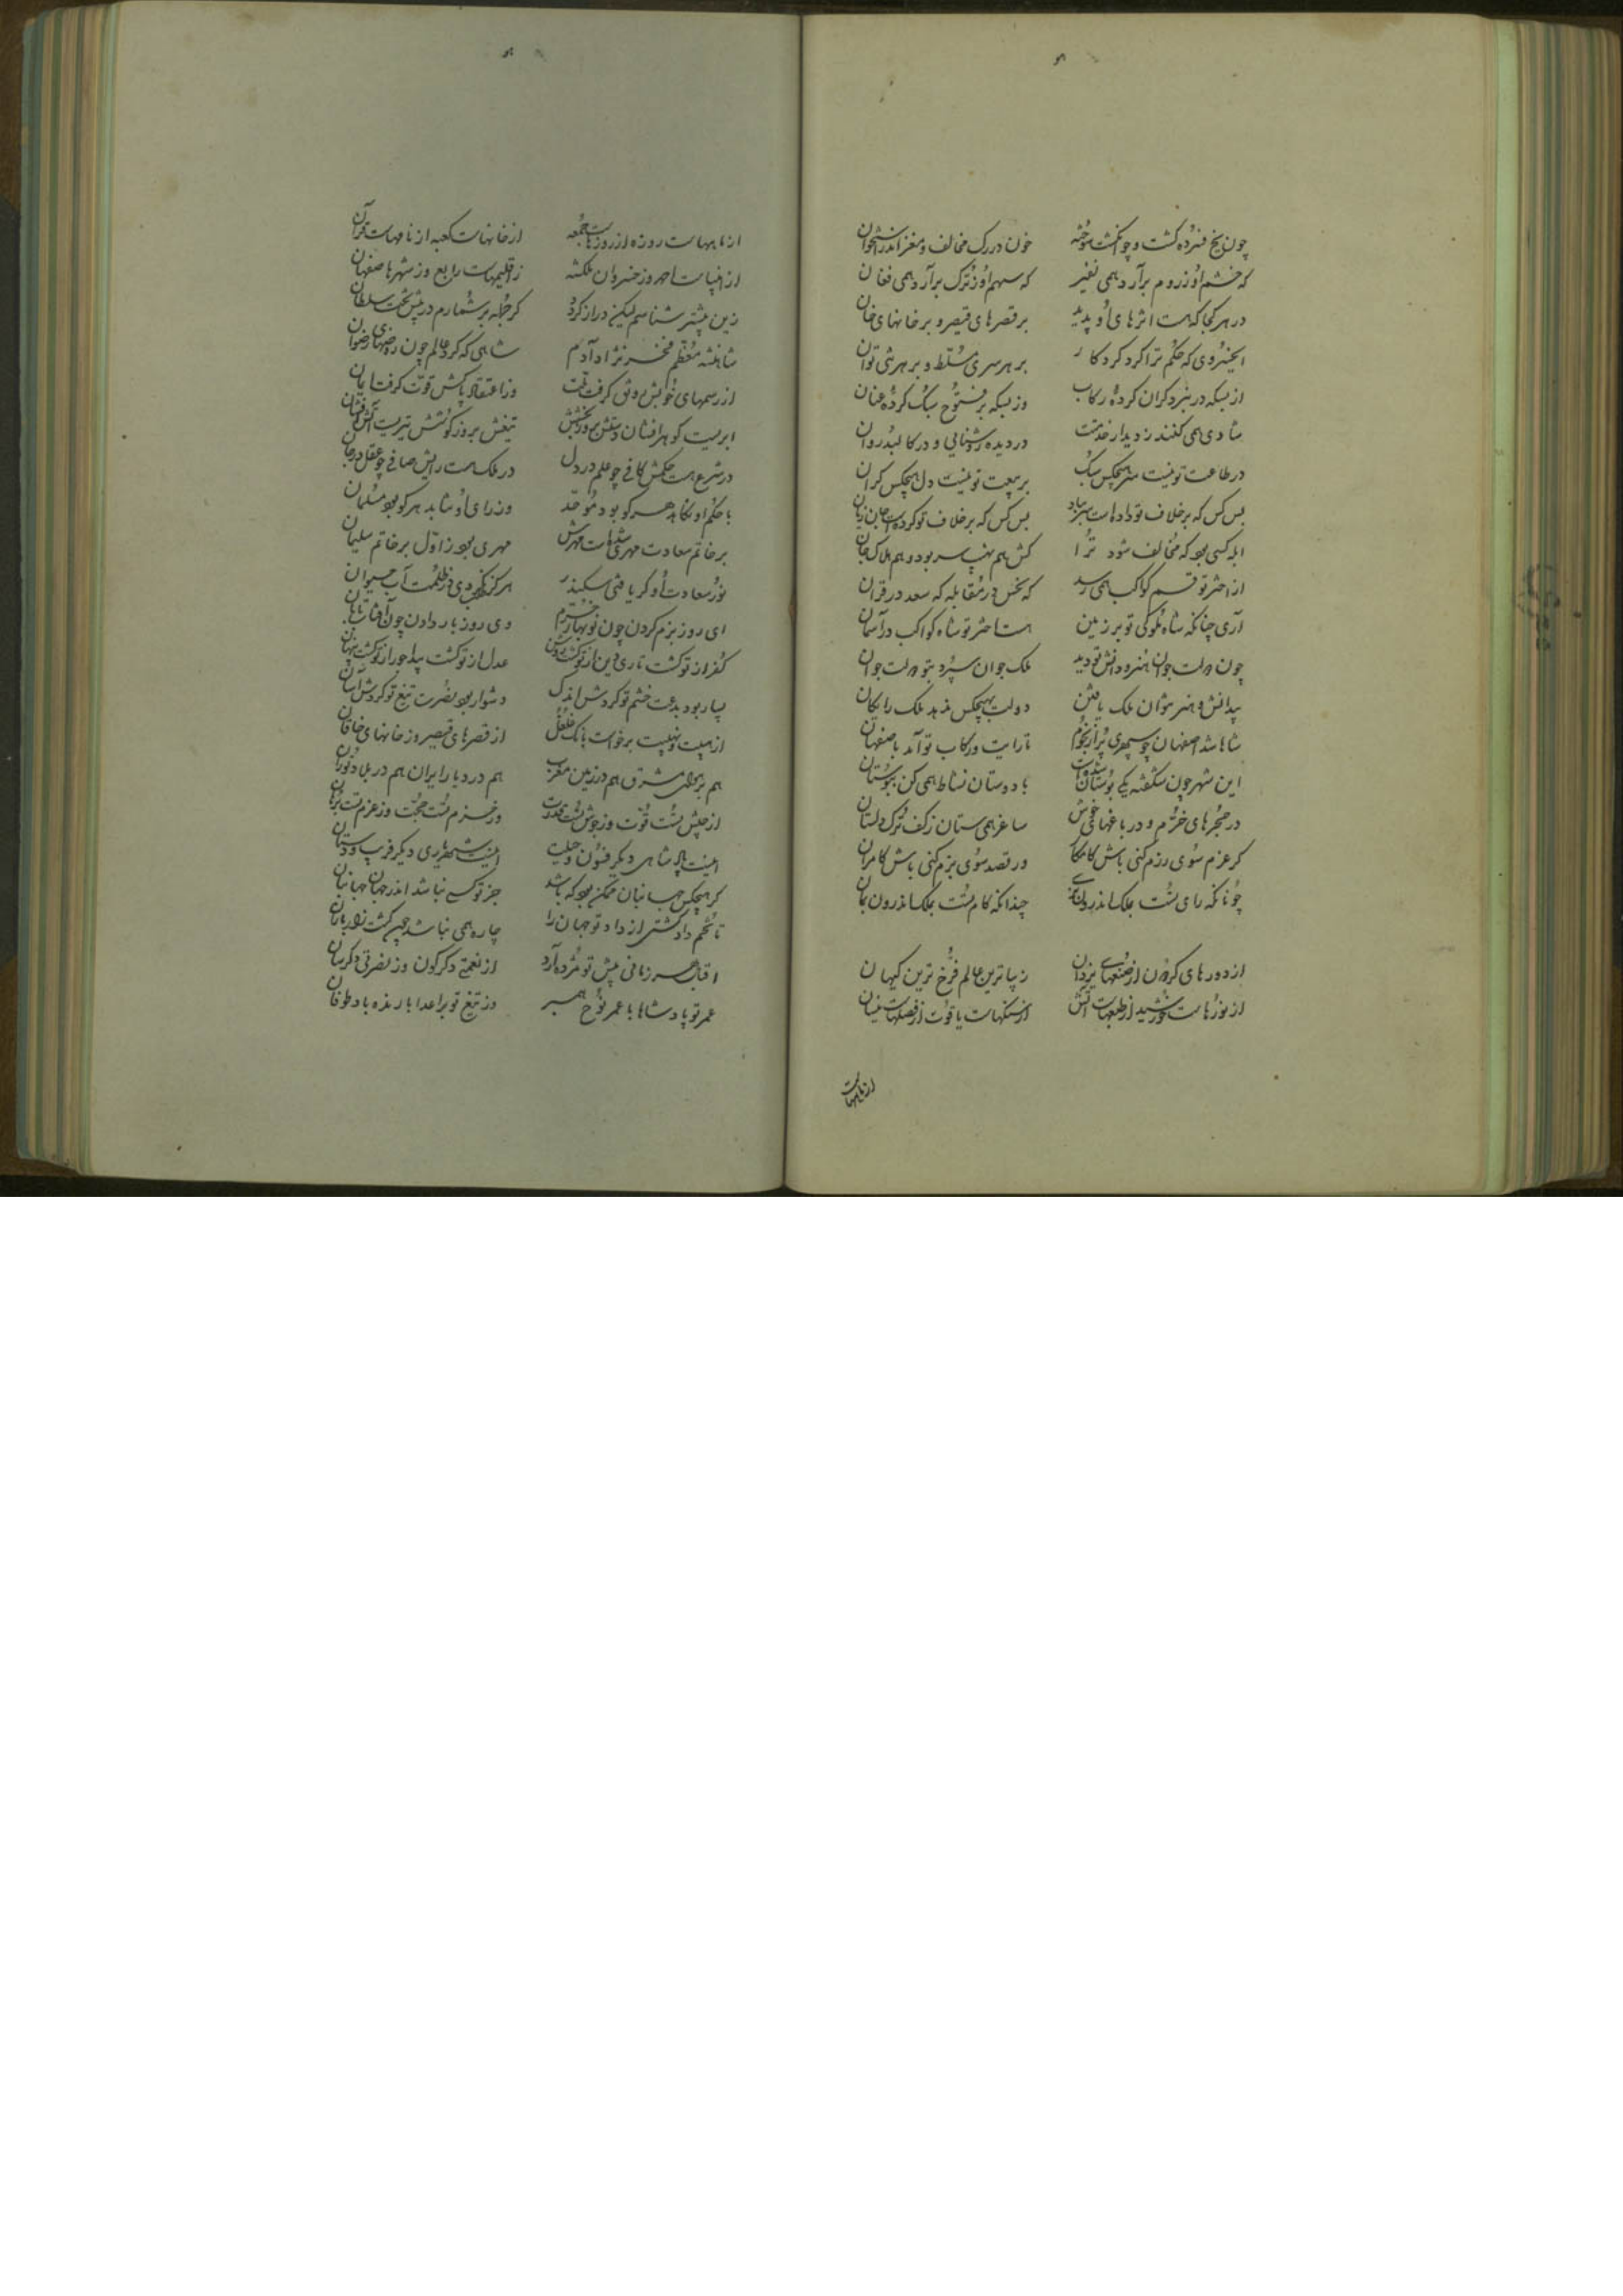 چون یخ فسرده گشت و چو انگشت سوخته خون در رگ مخالف و مغز اندر استخوان
که خشم او ز روم برآرد همی نفیر که سهم او ز ترک برآرد همی فغان
در هر کجا که هست اثرهای او پدید بر قصرهای قیصر و بر خانهای خان
ای خسروی که حکم ترا کرد کردگار بر هر سری مسلط و بر هر تنی توان
از بسکه در نبرد گران کردهٔ رکاب وز بسکه بر فتوح سبک کردهٔ عنان
شادی همی کنند ز دیدار خدمتت در دیده روشنایی و در کالبد روان
در طاعت تو نیست سر هیچکس سبک بر بیعت تو نیست دل هیچکس گران
بس کس که بر خلاف تو دادست سر بباد بس کس که بر خلاف تو کردست جان زیان
ابله کسی بود که مخالف شود ترا کش هم نهیب سر بود و هم هلاک جان
از اختر تو قسم کواکب همی رسد که نحس در مقابله که سعد در قران
آری چنانکه شاه ملوکی تو بر زمین هست اختر تو شاه کواکب در آسمان
چون دولت جوان هنر و دانش تو دید ملک جوان سپرد بتو دولت جوان
بیدانش و هنر نتوان ملک یافتن دولت بهیچکس ندهد ملک رایگان
شاها شد اصفهان چو سپهری پر از نجوم تا رایت و رکاب تو آمد باصفهان
این شهر چون شکفته یکی بوستان شدست با دوستان نشاط همی کن ببوستان
در حجرهای خرم و در باغهای خوش ساغر همی ستان ز کف ترک دلستان
گر عزم سوی رزم کنی باش کامکار ور قصد سوی بزم کنی باش کامران
چونانکه رای تست بملک اندرون بزی چندانکه کام تست بملک اندرون بمان
از دورهای گردون از صنعهای یزدان زیباترین عالم فرخ ترین کیهان
از نورهاست خورشید از طبعهاست آتش از سنگهاست یاقوت از فصلهاست نیسان
از ماههاست
از ماههاست روزه از روزهاست جمعه از خانهاست کعبه از نامهاست قرآن
از انبیاست احمد وز خسروان ملکشه ز اقلیمهاست رابع وز شهرها صفاهان
زین بیشتر شناسم لیکن دراز گردد گر جمله برشمارم در پیش تخت سلطان
شاهنشه معظم فخر نژاد آدم شاهی که کرد عالم چون روضهای رضوان
از رسمهای خوبش رونق گرفت ملت وز اعتقاد پاکش قوت گرفت ایمان
ابریست گوهرافشان دستش بروز بخشش تیغش بروز کوشش تیریست آتش افشان
در شرع هست حکمش کافی چو علم در دل در ملک هست رایش صافی چو عقل در جان
با حکم او نکاهد هر کو بود موحد وز رای او نتابد هر کو بود مسلمان
بر خاتم سعادت مهری شدهاست مهرش مهری که بود ز اول بر خاتم سلیمان
نور سعادت او گر یافتی سکندر هرگز نگم بدی در ظلمت آب حیوان
ای روز بزم کردن چون نوبهار خرم وی روز بار دادن چون آفتاب تابان
کفر از تو گشت تاری دین از تو گشت روشن عدل از تو گشت پیدا جور از تو گشت پنهان
بسیار بود بدعت خشم تو کردش اندک دشوار بود نصرت تیغ تو کردش آسان
از هیبت و نهیبت برخواست بانک غلغل از قصرهای قیصر وز خانهای خاقان
هم بر هوای مشرق هم در زمین مغرب هم در دیار ایران هم در بلاد توران
از جیش تست قوت وز جوش تست قدرت وز حزم تست حجت وز عزم تست برهان
اینست پادشاهی دیگر فنون و حیلت اینست شهریاری دیگر فریب و دستان
گر هیچکس جهانبان ممکن بود که باشد جز تو کسی نباشد اندر جهان جهانبان
تا تخم داد کشتی از داد تو جهان را چاره همی نباشد چون کشت را ز باران
اقبال هر زمانی پیش تو مژده آرد از نعمتی دگرگون وز نصرتی دگرسان
عمر تو پادشاها با عمر نوح همبر وز تیغ تو بر اعدا بارنده باد طوفان